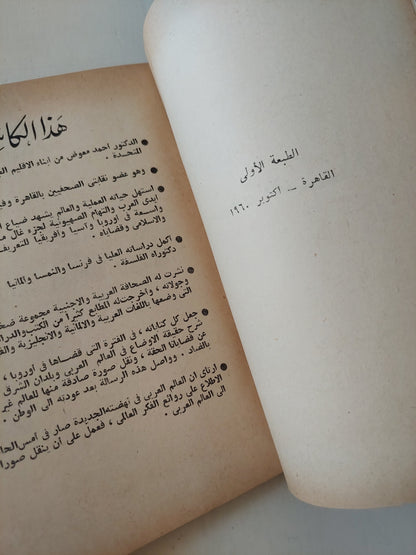 هذا الكا
الدكتور احمد معوض من ابناء الاقليم
المتحدة .
وهو عضو نقابتى الصحفيين بالقاهرة وفي
استهل حياته العملية والعالم يشهد ضياع
ايدى العرب والتهام الصهيونية لجزء غال
واسعة فى اوروبا وآسيا وأفريقيا للتعريف
والاسلامى وقضاياه .
أكمل دراساته العليا فى فرنسا والنمسا والمانيا
دكتوراه الفلسفة .
نشرت له الصحافة العربية والاجنبية مجموعة ضخ
وجولاته ، واخرجت له المطابع كثيرا من الكتب والدرا
التى وضعها باللغات العربية والالمانية والانجليزية والف
جعل كل كتاباته ، فى الفترة التى قضاها فى اوروبا ،
شرح حقيقة الأوضاع فى العالم العربى وبلدان الشرق
عن قضايانا الحقة ، ونقل صورة صادقة منها للعالم غير
بالضاد . وواصل هذه الرسالة بعد عودته الى الوطن .
ارتأى ان العالم العربى فى نهضته الجديدة صار فى أمس الحا
الاطلاع على روائع الفكر العالمى ، فعمل على ان ينقل صورا
الى العالم العربى .
الطبعة الأولى
القاهرة - اكتوبر ١٩٦٠